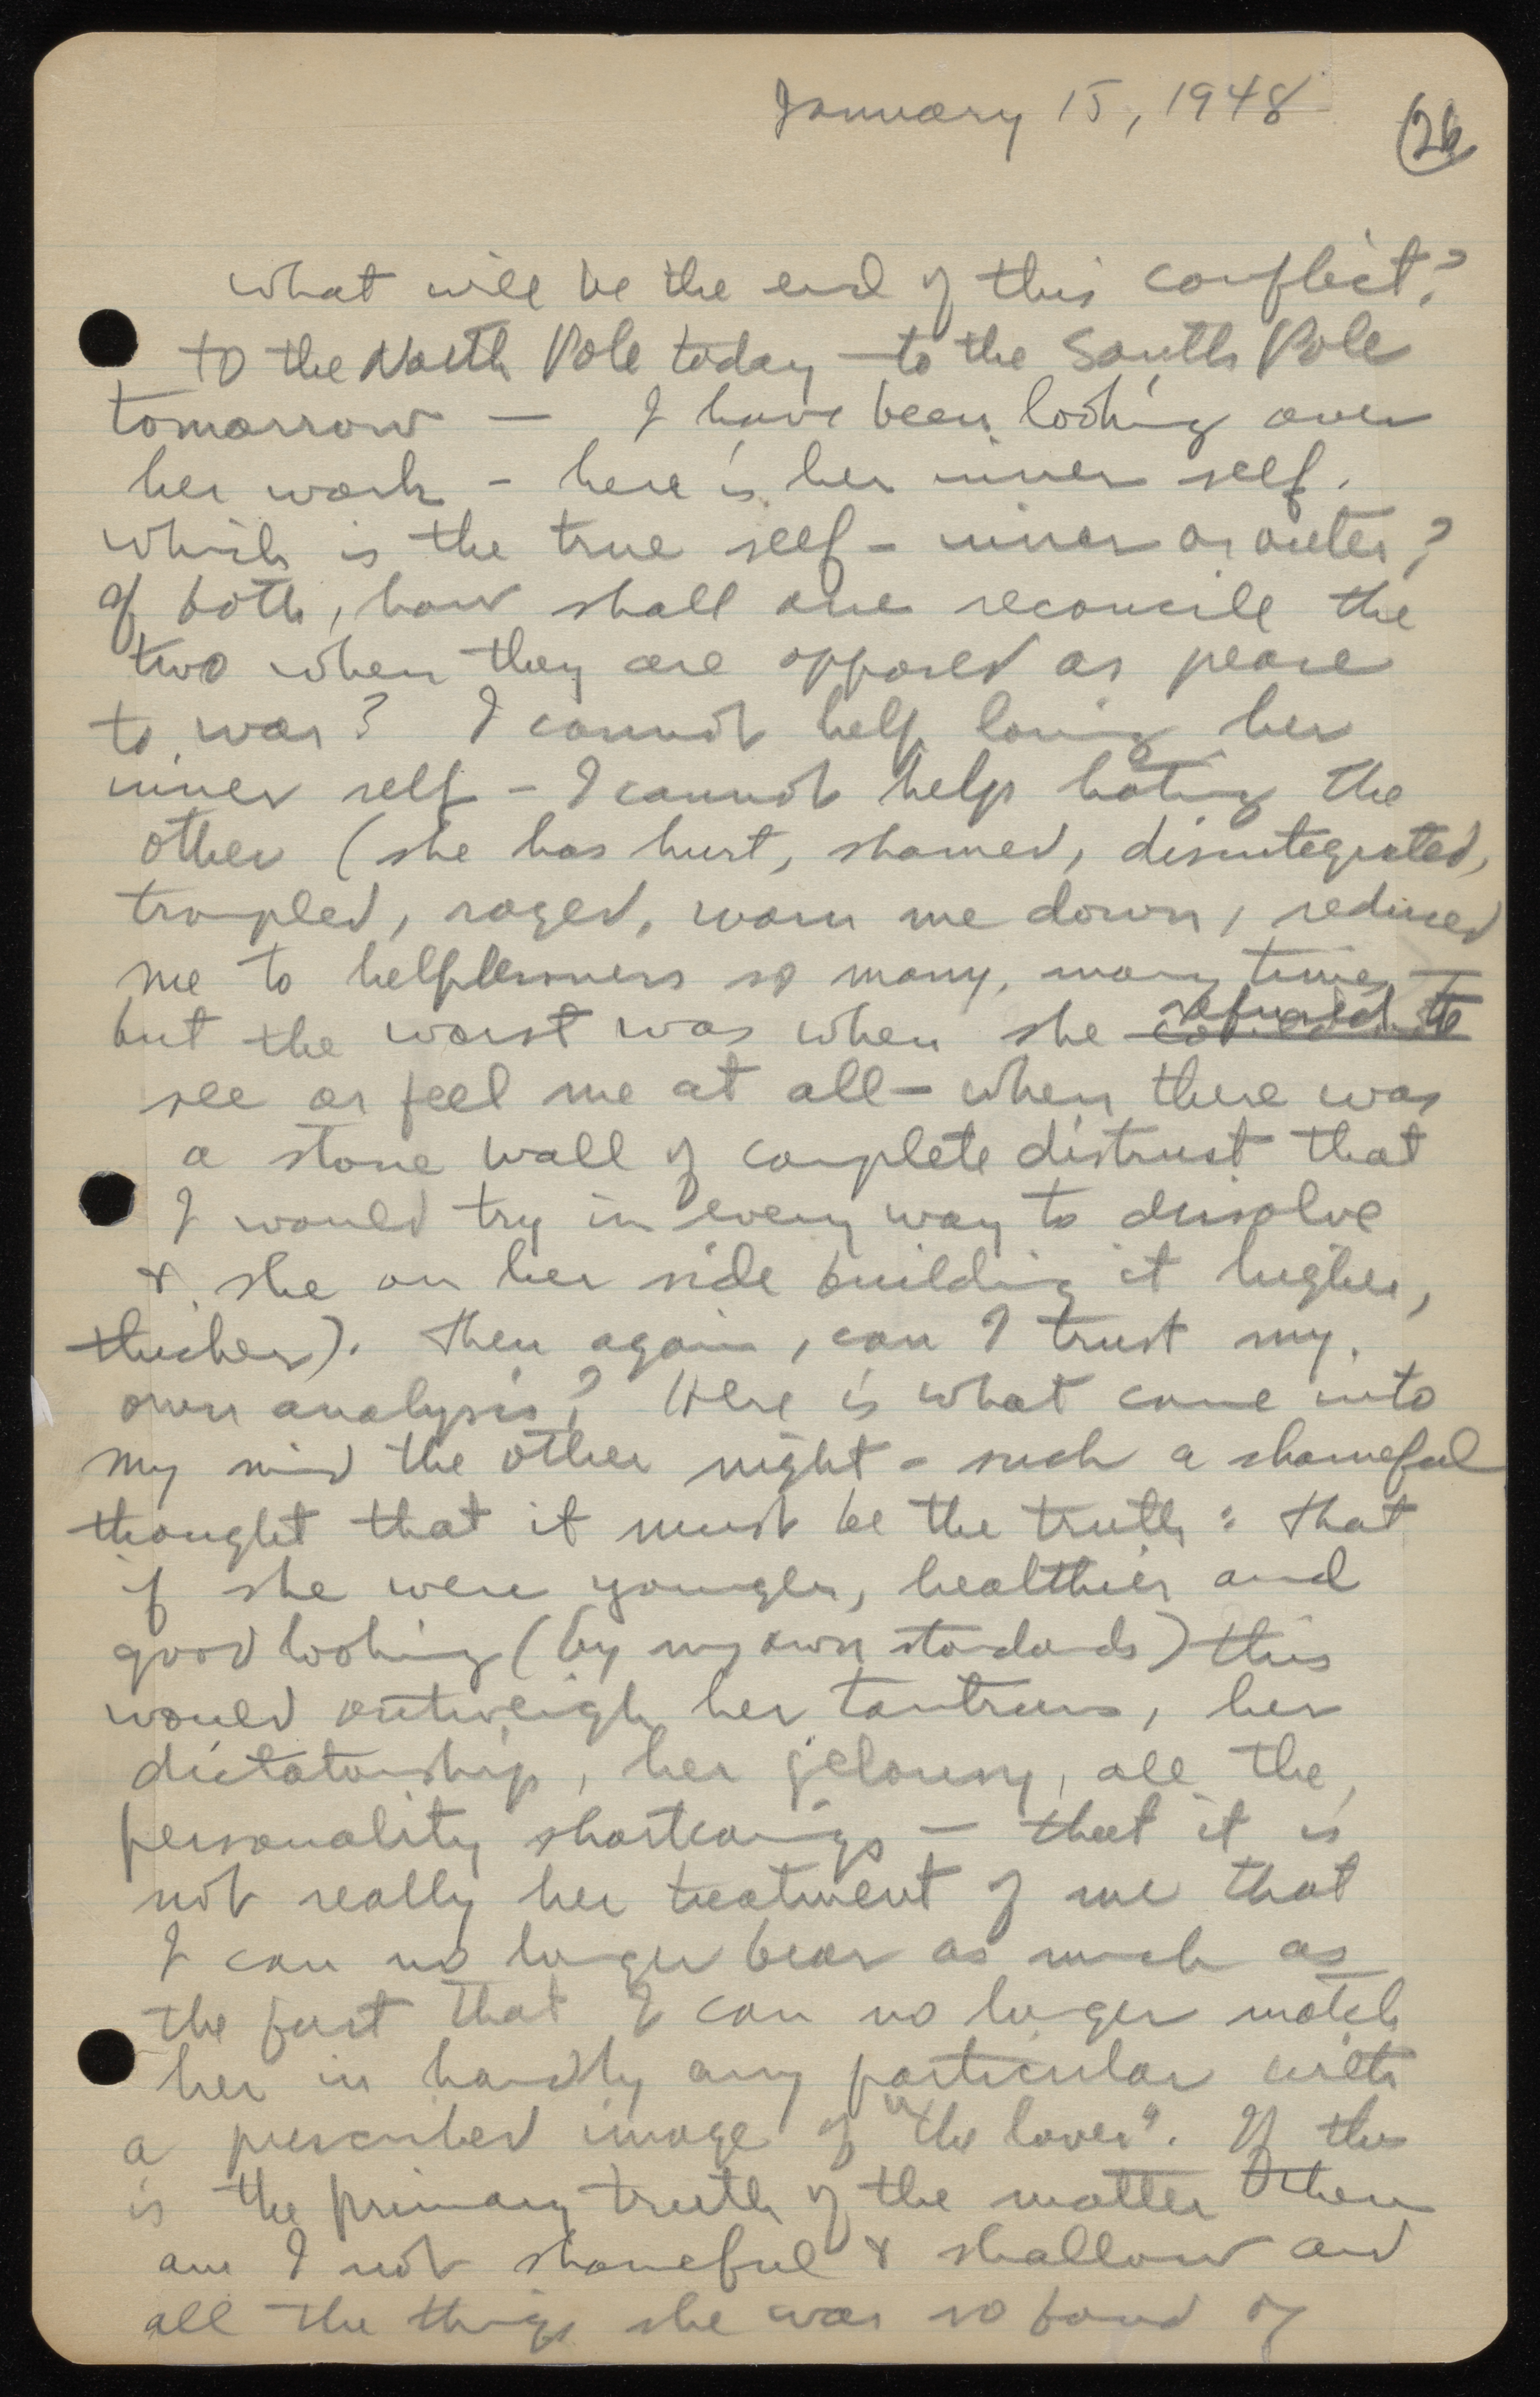 January 15, 1948
26
what will be the end of this conflict?
to the North Pole today — to the South Pole
tomorrow — I have been looking over
her work - here is her inner self.
which is the true self - inner or outer?
If both, how shall one reconcile the
two when they are opposed as peace
to war? I cannot help loving her
inner self - I cannot help hating the
other (she has hurt, shamed, disintegrated,
trampled, raged, worn me down, reduced
me to helplessness so many, many times —
but the worst was when she refused to
see or feel me at all - when there was
a stone wall of complete distrust that
I would try in every way to dissolve
& she on her side building it higher,
thicker). Then again, can I trust my
own analysis? Here is what came into
my mind the other night - such a shameful
thought that it must be the truth: that
if she were younger, healthier and
good looking (by my own standards) this
would outweigh her tantrums, her
dictatorship, her jelousy, all the
personality shortcomings — that it is
not really her treatment of me that
I can no longer bear as much as
the fact that I can no longer match
her in hardly any particular with
a prescribed image of "the lover". If this
is the primary truth of the matter then
am I not shameful & shallow and
all the things she was so fond of